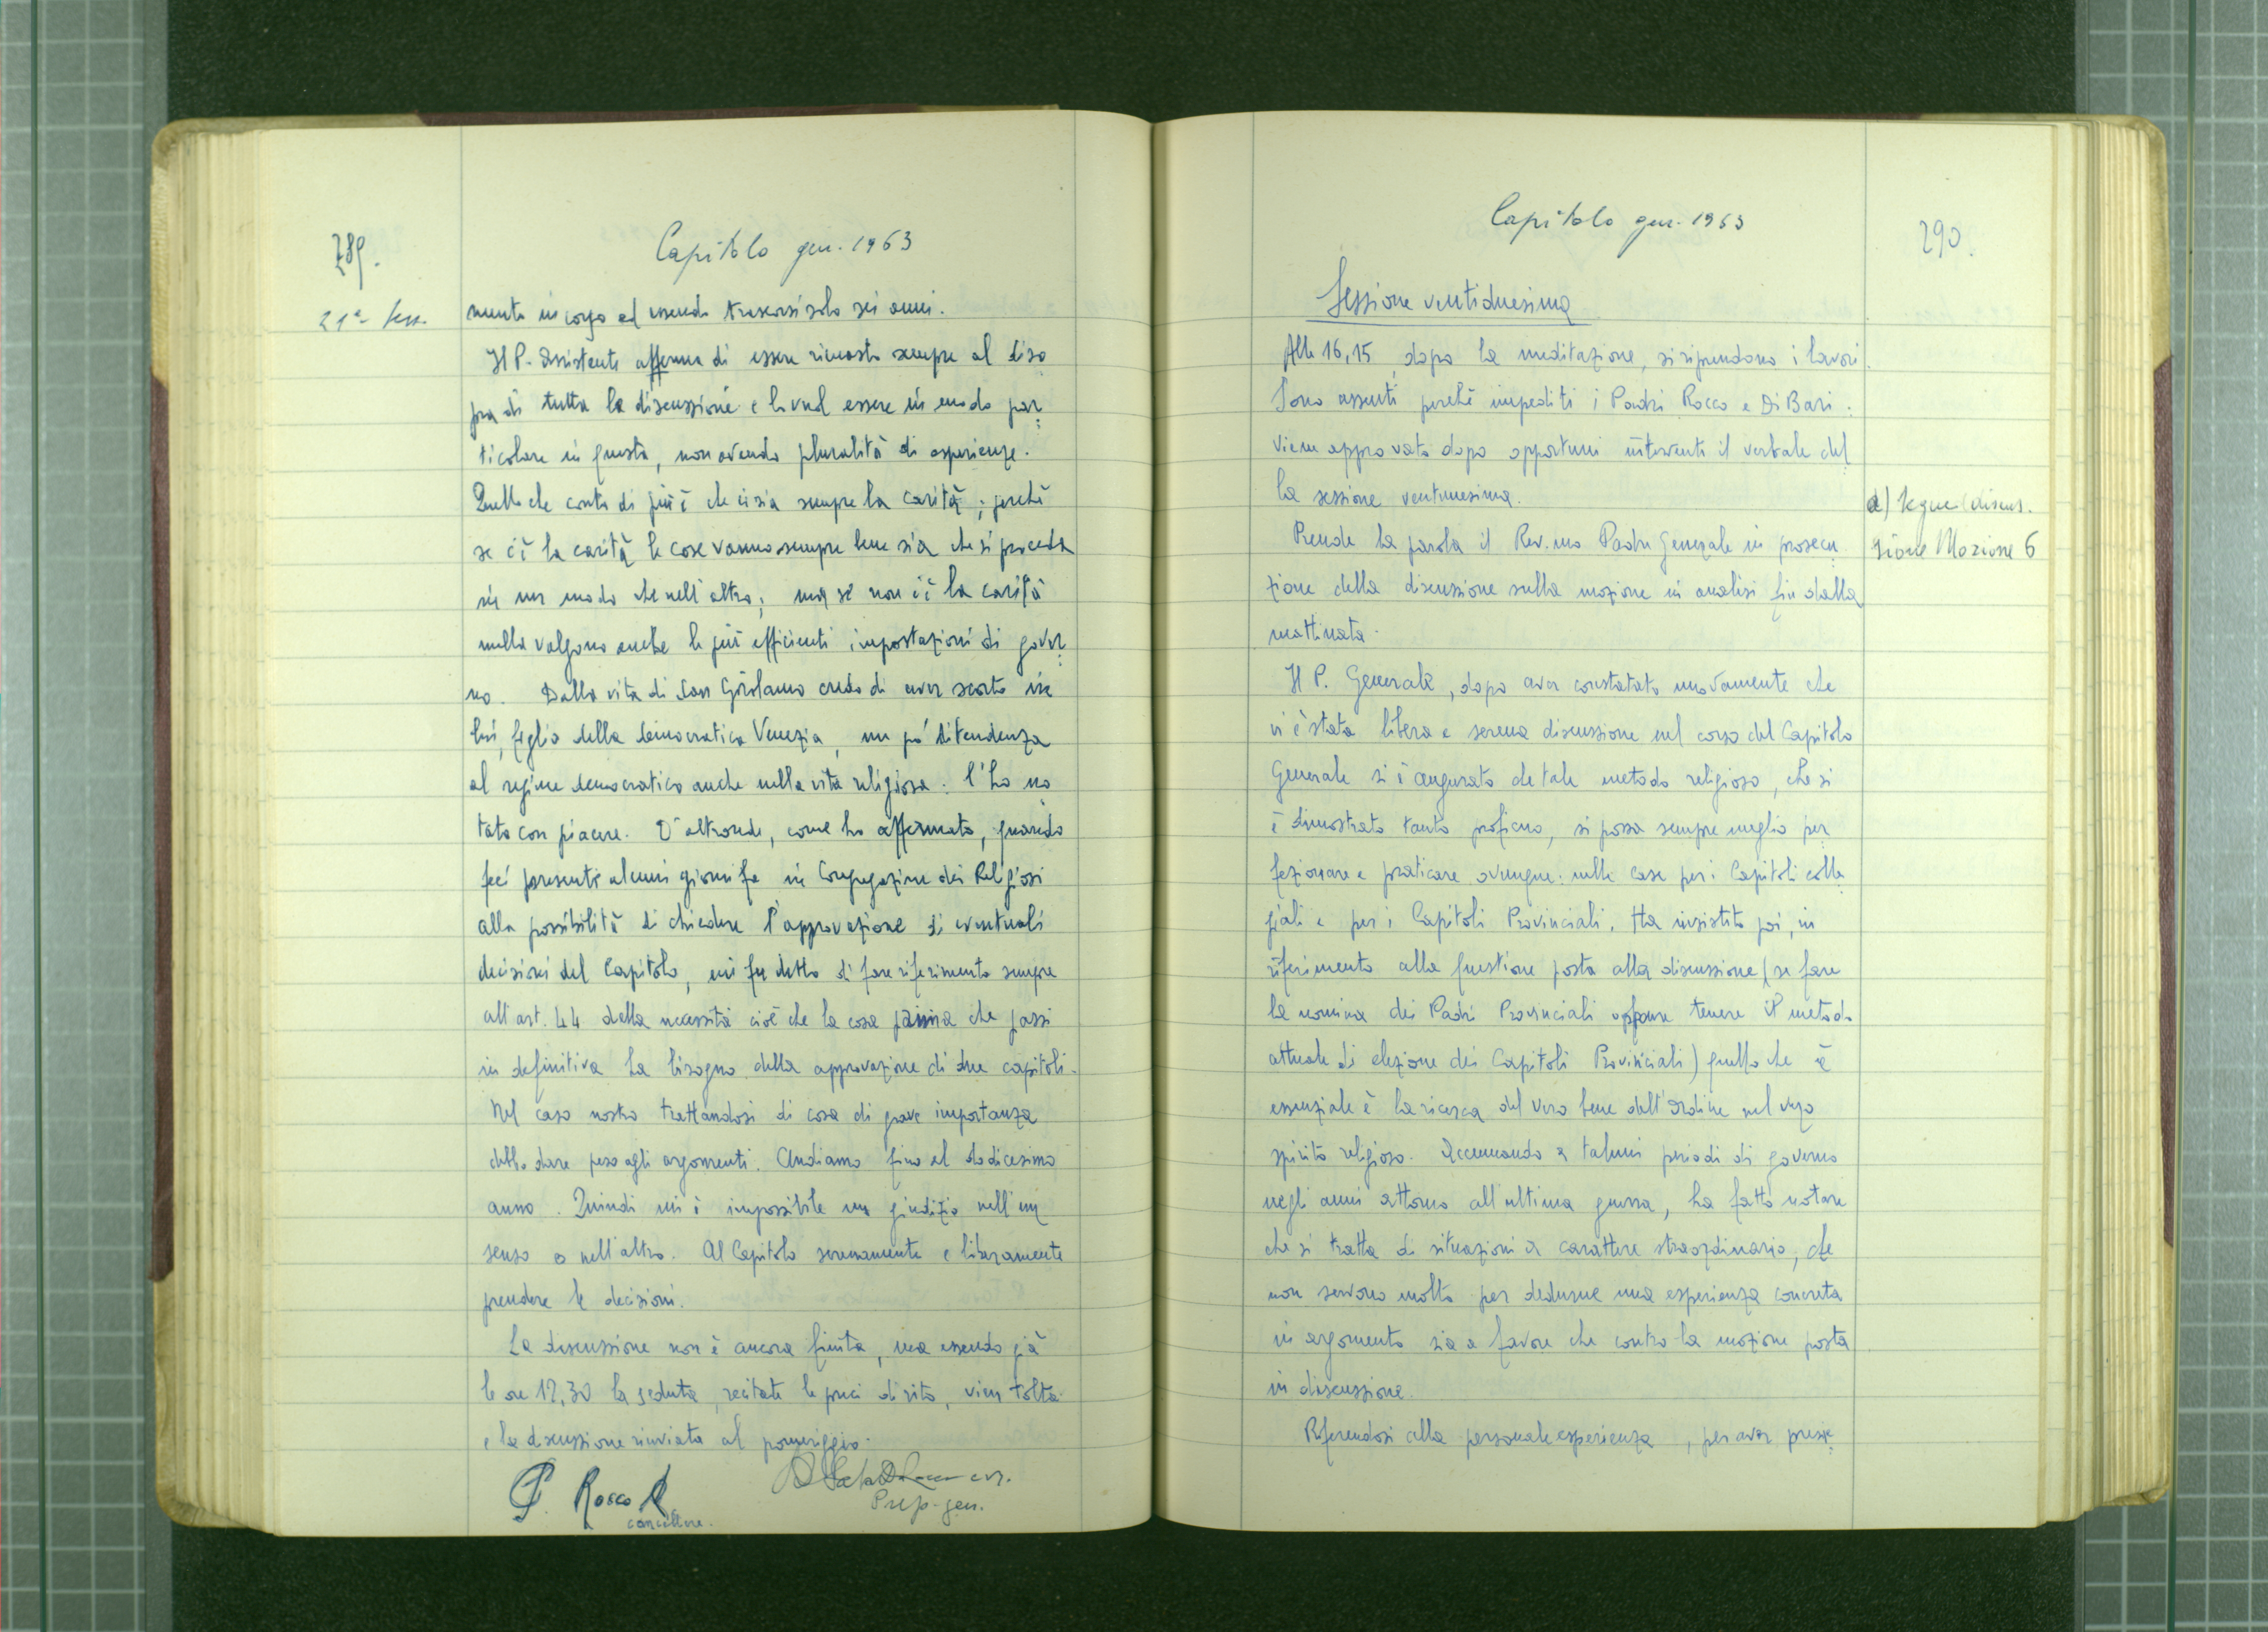 289.
Capitolo gen. 1963
21ª Sess.
mento in corso ed essendo trascorsi solo sei anni.
Il P. Assistente afferma di essere rimasto sempre al diso
pra di tutta la discussione e lo vuol essere in modo par
ticolare in questo, non avendo pluralità di esperienze.
Quello che conta di più è che ci sia sempre la carità; perché
se c'è la carità le cose vanno sempre bene sia che si proceda
in un modo che nell'altro; ma se non c'è la carità
nulla valgono anche le più efficienti impostazioni di gover
no. Dalla vita di San Girolamo credo di aver scorto in
lui, figlio della democratica Venezia, un po' di tendenza
al regime democratico anche nella vita religiosa. L'ho no
tato con piacere. D'altronde, come ho affermato, quando
feci presente alcuni giorni fa in Congregazione dei Religiosi
alla possibilità di chiedere l'approvazione di eventuali
decisioni del Capitolo, mi fu detto di fare riferimento sempre
all'art. 44 della necessità cioè che la cosa prima che passi
in definitiva ha bisogno della approvazione di due capitoli.
Nel caso nostro trattandosi di cosa di grave importanza
debbo dare peso agli argomenti. Andiamo fino al dodicesimo
anno. Quindi mi è impossibile un giudizio nell'un
senso o nell'altro. Al Capitolo serenamente e liberamente
prendere le decisioni.
La discussione non è ancora finita, ma essendo già
le ore 12,30 la seduta, recitate le preci di rito, vien tolta
e la discussione rinviata al pomeriggio.
P. Rocco
cancelliere.
crs.
Prep. gen.
Capitolo gen. 1963
290.
Sessione ventiduesima
Alle 16,15, dopo la meditazione, si riprendono i lavori.
Sono assenti perché impediti i Padri Rocco e Di Bari.
Viene approvato dopo opportuni interventi il verbale del
la sessione ventunesima.
a) Segue discus.
sione Mozione 6
Prende la parola il Rev.mo Padre Generale in prosecu
zione della discussione sulla mozione in analisi fin dalla
mattinata.
Il P. Generale, dopo aver constatato nuovamente che
vi è stata libera e serena discussione nel corso del Capitolo
Generale si è augurato che tale metodo religioso, che si
è dimostrato tanto proficuo, si possa sempre meglio per
fezionare e praticare ovunque: nelle case per i Capitoli colle
giali e per i Capitoli Provinciali. Ha insistito poi, in
riferimento alla questione posta alla discussione (se fare
la nomina dei Padri Provinciali oppure tenere il metodo
attuale di elezione dei Capitoli Provinciali) quello che è
essenziale è la ricerca del vero bene dell'Ordine nel vero
spirito religioso. Accennando a taluni periodi di governo
negli anni attorno all'ultima guerra, ha fatto notare
che si tratta di situazioni a carattere straordinario, che
non servono molto per dedurne una esperienza concreta
in argomento sia a favore che contro la mozione posta
in discussione.
Riferendosi alla personale esperienza, per aver presie